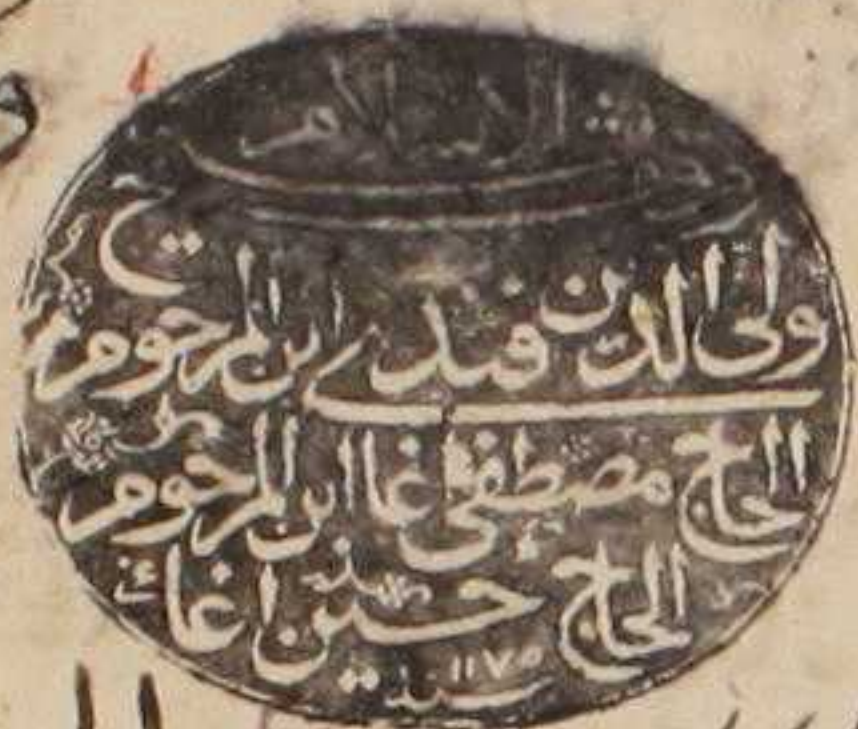 شيخ الاسلام
ولى الدين افندى ابن المرحوم
الحاج مصطفى اغا ابن المرحوم
الحاج حسين اغا
سنه ١١٧٥